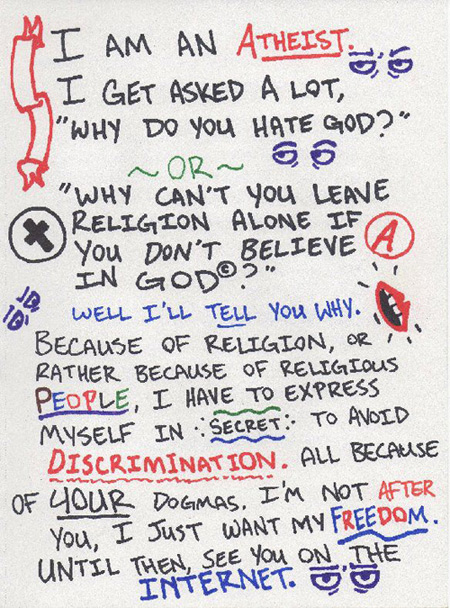 I AM AN ATHEIST.
I GET ASKED A LOT,
"WHY DO YOU HATE GOD?"
~OR~
"WHY CAN'T YOU LEAVE
RELIGION ALONE IF
A
YOU DON'T BELIEVE
IN GOD©?"
WELL I'LL TELL YOU WHY.
BECAUSE OF RELIGION, OR
RATHER BECAUSE OF RELIGIOUS
PEOPLE, I HAVE TO EXPRESS
MYSELF IN SECRET TO AVOID
DISCRIMINATION. ALL BECAUSE
OF YOUR DOGMAS. I'M NOT AFTER
YOU, I JUST WANT MY FREEDOM.
UNTIL THEN, SEE YOU ON THE
INTERNET.